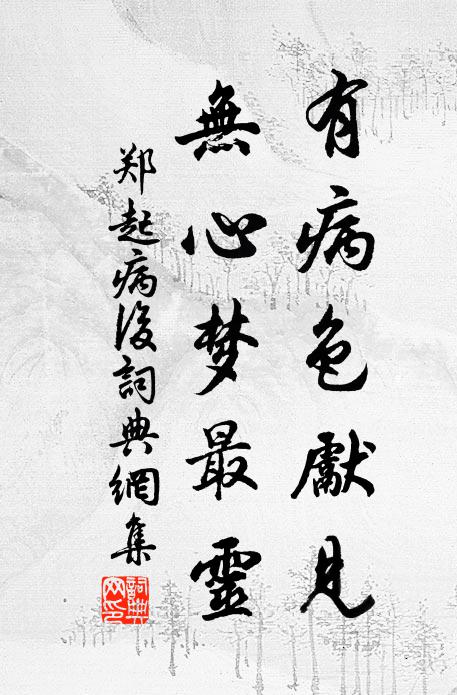 有病色獻見
無心梦最靈
郑起病後詞典網集
詞典
网印